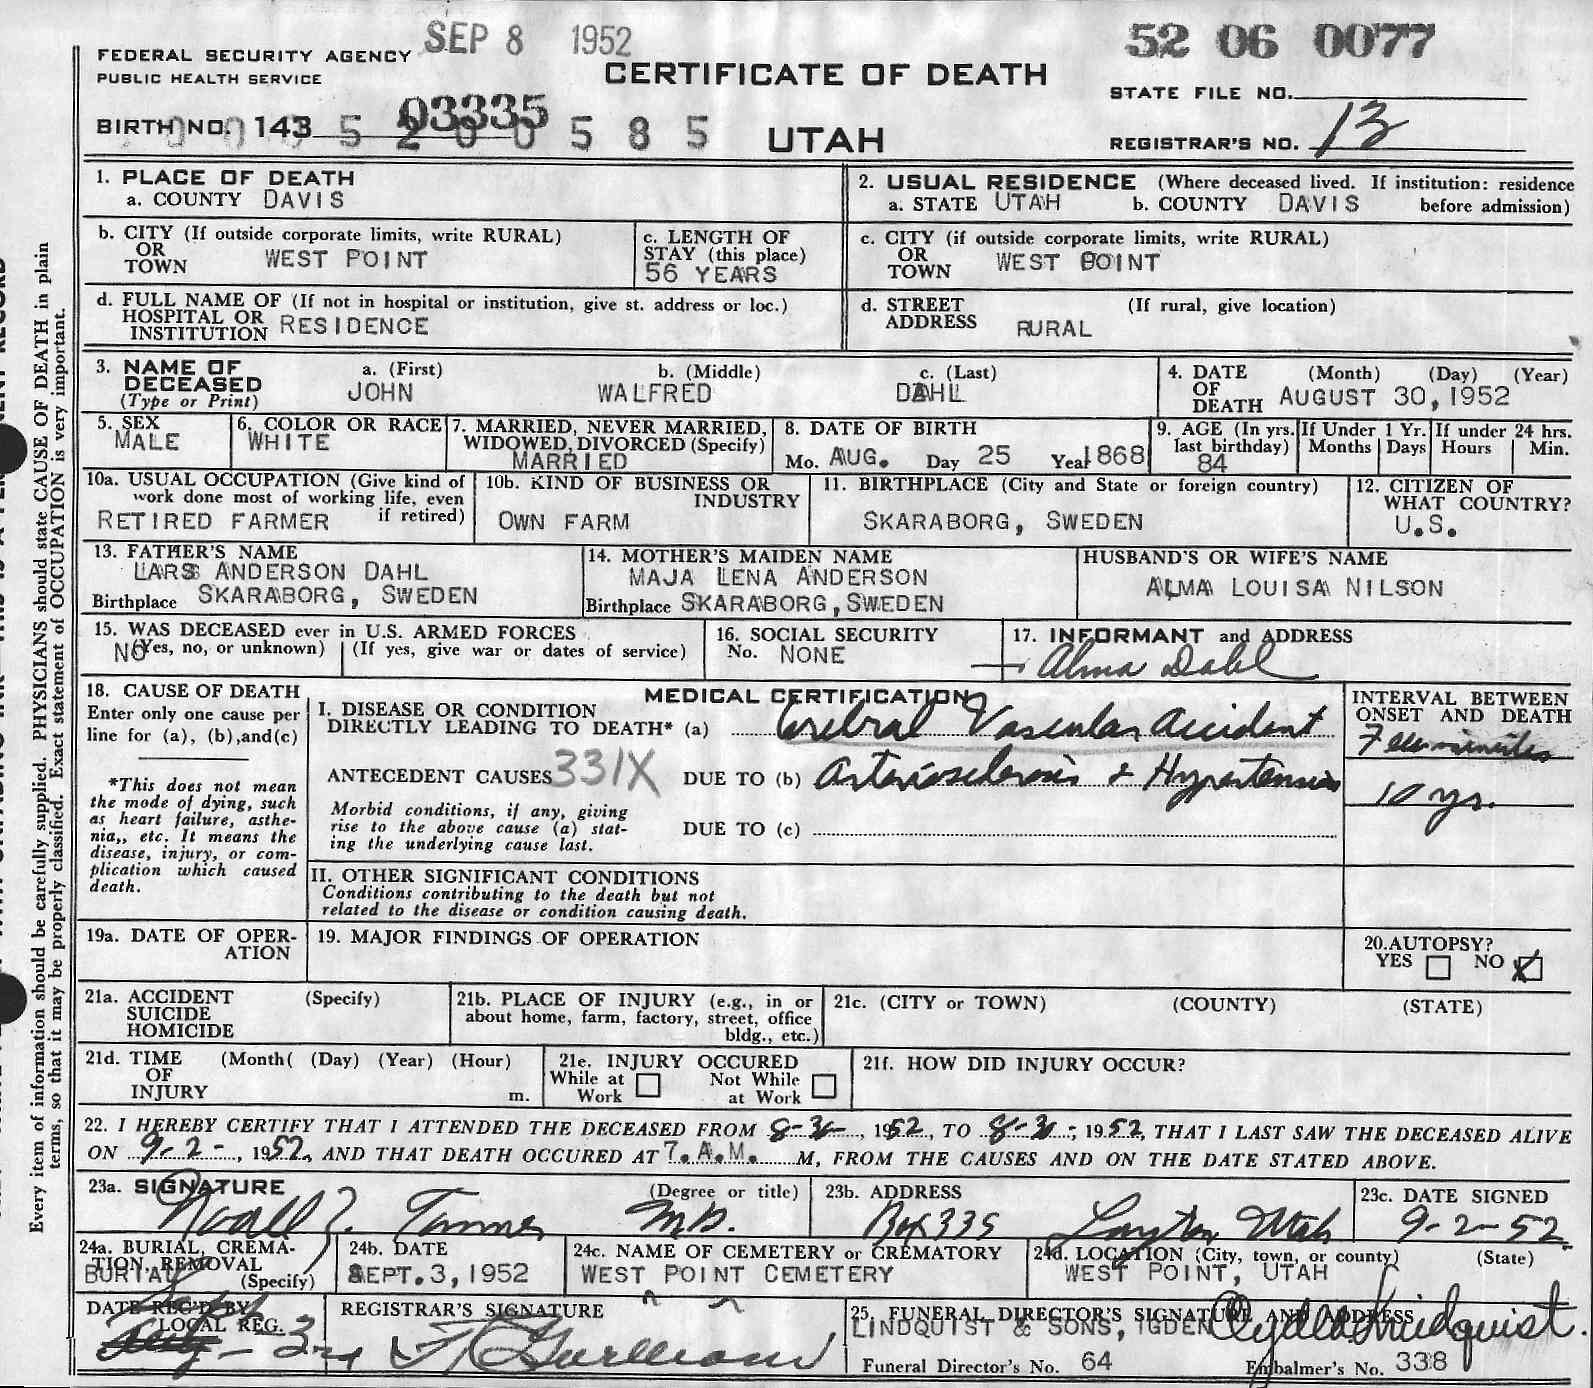 SEP 8 1952
52 06 0077
FEDERAL SECURITY AGENCY
PUBLIC HEALTH SERVICE
CERTIFICATE OF DEATH
STATE FILE NO.
03335
BIRTH NO. 143
5 2 0 0 5 8 5
UTAH
REGISTRAR'S NO. 13
1. PLACE OF DEATH
a. COUNTY DAVIS
2. USUAL RESIDENCE (Where deceased lived. If institution: residence before admission)
a. STATE UTAH b. COUNTY DAVIS
b. CITY (If outside corporate limits, write RURAL)
OR TOWN WEST POINT
c. LENGTH OF STAY (this place)
56 YEARS
c. CITY (if outside corporate limits, write RURAL)
OR TOWN WEST POINT
d. FULL NAME OF (If not in hospital or institution, give st. address or loc.)
HOSPITAL OR
INSTITUTION RESIDENCE
d. STREET ADDRESS (If rural, give location)
RURAL
3. NAME OF DECEASED
(Type or Print)
a. (First) b. (Middle) c. (Last)
JOHN WALFRED DAHL
4. DATE OF DEATH (Month) (Day) (Year)
AUGUST 30, 1952
5. SEX
MALE
6. COLOR OR RACE
WHITE
7. MARRIED, NEVER MARRIED,
WIDOWED, DIVORCED (Specify)
MARRIED
8. DATE OF BIRTH
Mo. AUG. Day 25 Year 1868
9. AGE (In yrs. last birthday)
84
If Under 1 Yr.
Months Days
If under 24 hrs.
Hours Min.
10a. USUAL OCCUPATION (Give kind of
work done most of working life, even
if retired)
RETIRED FARMER
10b. KIND OF BUSINESS OR
INDUSTRY
OWN FARM
11. BIRTHPLACE (City and State or foreign country)
SKARABORG, SWEDEN
12. CITIZEN OF
WHAT COUNTRY?
U.S.
13. FATHER'S NAME
LARS ANDERSON DAHL
Birthplace SKARABORG, SWEDEN
14. MOTHER'S MAIDEN NAME
MAJA LENA ANDERSON
Birthplace SKARABORG, SWEDEN
HUSBAND'S OR WIFE'S NAME
ALMA LOUISA NILSON
15. WAS DECEASED ever in U.S. ARMED FORCES
NO (Yes, no, or unknown) (If yes, give war or dates of service)
16. SOCIAL SECURITY
No. NONE
17. INFORMANT and ADDRESS
Alma Dahl
18. CAUSE OF DEATH
Enter only one cause per
line for (a), (b), and (c)
*This does not mean
the mode of dying, such
as heart failure, asthe-
nia,, etc. It means the
disease, injury, or com-
plication which caused
death.
MEDICAL CERTIFICATION
I. DISEASE OR CONDITION
DIRECTLY LEADING TO DEATH* (a) Cerebral Vascular Accident
ANTECEDENT CAUSES 331X DUE TO (b) Arteriosclerosis & Hypertension
Morbid conditions, if any, giving
rise to the above cause (a) stat-
ing the underlying cause last.
DUE TO (c)
INTERVAL BETWEEN
ONSET AND DEATH
Few minutes
10 yrs.
II. OTHER SIGNIFICANT CONDITIONS
Conditions contributing to the death but not
related to the disease or condition causing death.
19a. DATE OF OPER-
ATION
19. MAJOR FINDINGS OF OPERATION
20. AUTOPSY?
YES NO X
21a. ACCIDENT
SUICIDE
HOMICIDE
(Specify)
21b. PLACE OF INJURY (e.g., in or
about home, farm, factory, street, office
bldg., etc.)
21c. (CITY or TOWN) (COUNTY) (STATE)
21d. TIME OF INJURY (Month( (Day) (Year) (Hour)
m.
21e. INJURY OCCURED
While at Work Not While at Work
21f. HOW DID INJURY OCCUR?
22. I HEREBY CERTIFY THAT I ATTENDED THE DECEASED FROM 1952, TO 1952, THAT I LAST SAW THE DECEASED ALIVE
ON 9-2-, 1952, AND THAT DEATH OCCURED AT 7. A.M. M, FROM THE CAUSES AND ON THE DATE STATED ABOVE.
23a. SIGNATURE (Degree or title)
Noall Z. Tanner M.D.
23b. ADDRESS
Box 335 Layton Utah
23c. DATE SIGNED
9-2-52.
24a. BURIAL, CREMA-
TION, REMOVAL
BURIAL (Specify)
24b. DATE
SEPT. 3, 1952
24c. NAME OF CEMETERY or CREMATORY
WEST POINT CEMETERY
24d. LOCATION (City, town, or county) (State)
WEST POINT, UTAH
DATE REC'D BY
LOCAL REG.
3rd
REGISTRAR'S SIGNATURE
25. FUNERAL DIRECTOR'S SIGNATURE AND ADDRESS
LINDQUIST & SONS, IGDEN Clyde Lindquist.
Funeral Director's No. 64 Embalmer's No. 338
Every item of information should be carefully supplied. PHYSICIANS should state CAUSE OF DEATH in plain
terms, so that it may be properly classified. Exact statement of OCCUPATION is very important.